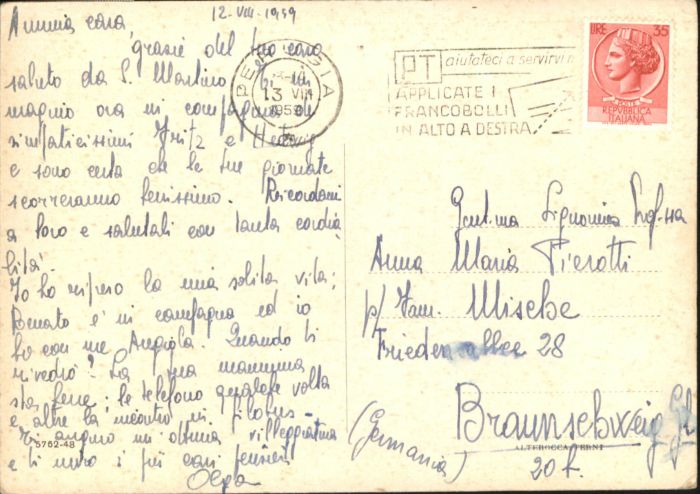 12-VIII-1959
Annnia cara,
grazie del tuo caro
saluto da S. Martino. Ti im
magino ora in compagnia dei
simpaticissimi Fritz e Hedwig
e sono certa che le tue giornate
scorreranno benissimo. Ricordami
a loro e salutali con tanta cordia
lità
Io ho ripreso la mia solita vita;
Renato è in campagna ed io
ho con me Angiola. Quando ti
rivedrò? La tua mamma
sta bene; le telefono qualche volta
e altre la incontro in filobus -
Ti auguro un'ottima villeggiatura
e ti invio i più cari pensieri
Olga
5762-48
PERUGIA
13 VIII
1959
PT aiutateci a servirvi m
APPLICATE I
FRANCOBOLLI
IN ALTO A DESTRA
LIRE 35
POSTE
REPVBBLICA
ITALIANA
Gent.ma Signorina Prof.ssa
Anna Maria Pierotti
p/ Fam. Mische
Friedensallee 28
Braunschweig
(Germania)
20 f.
ALTEROCCA TERNI